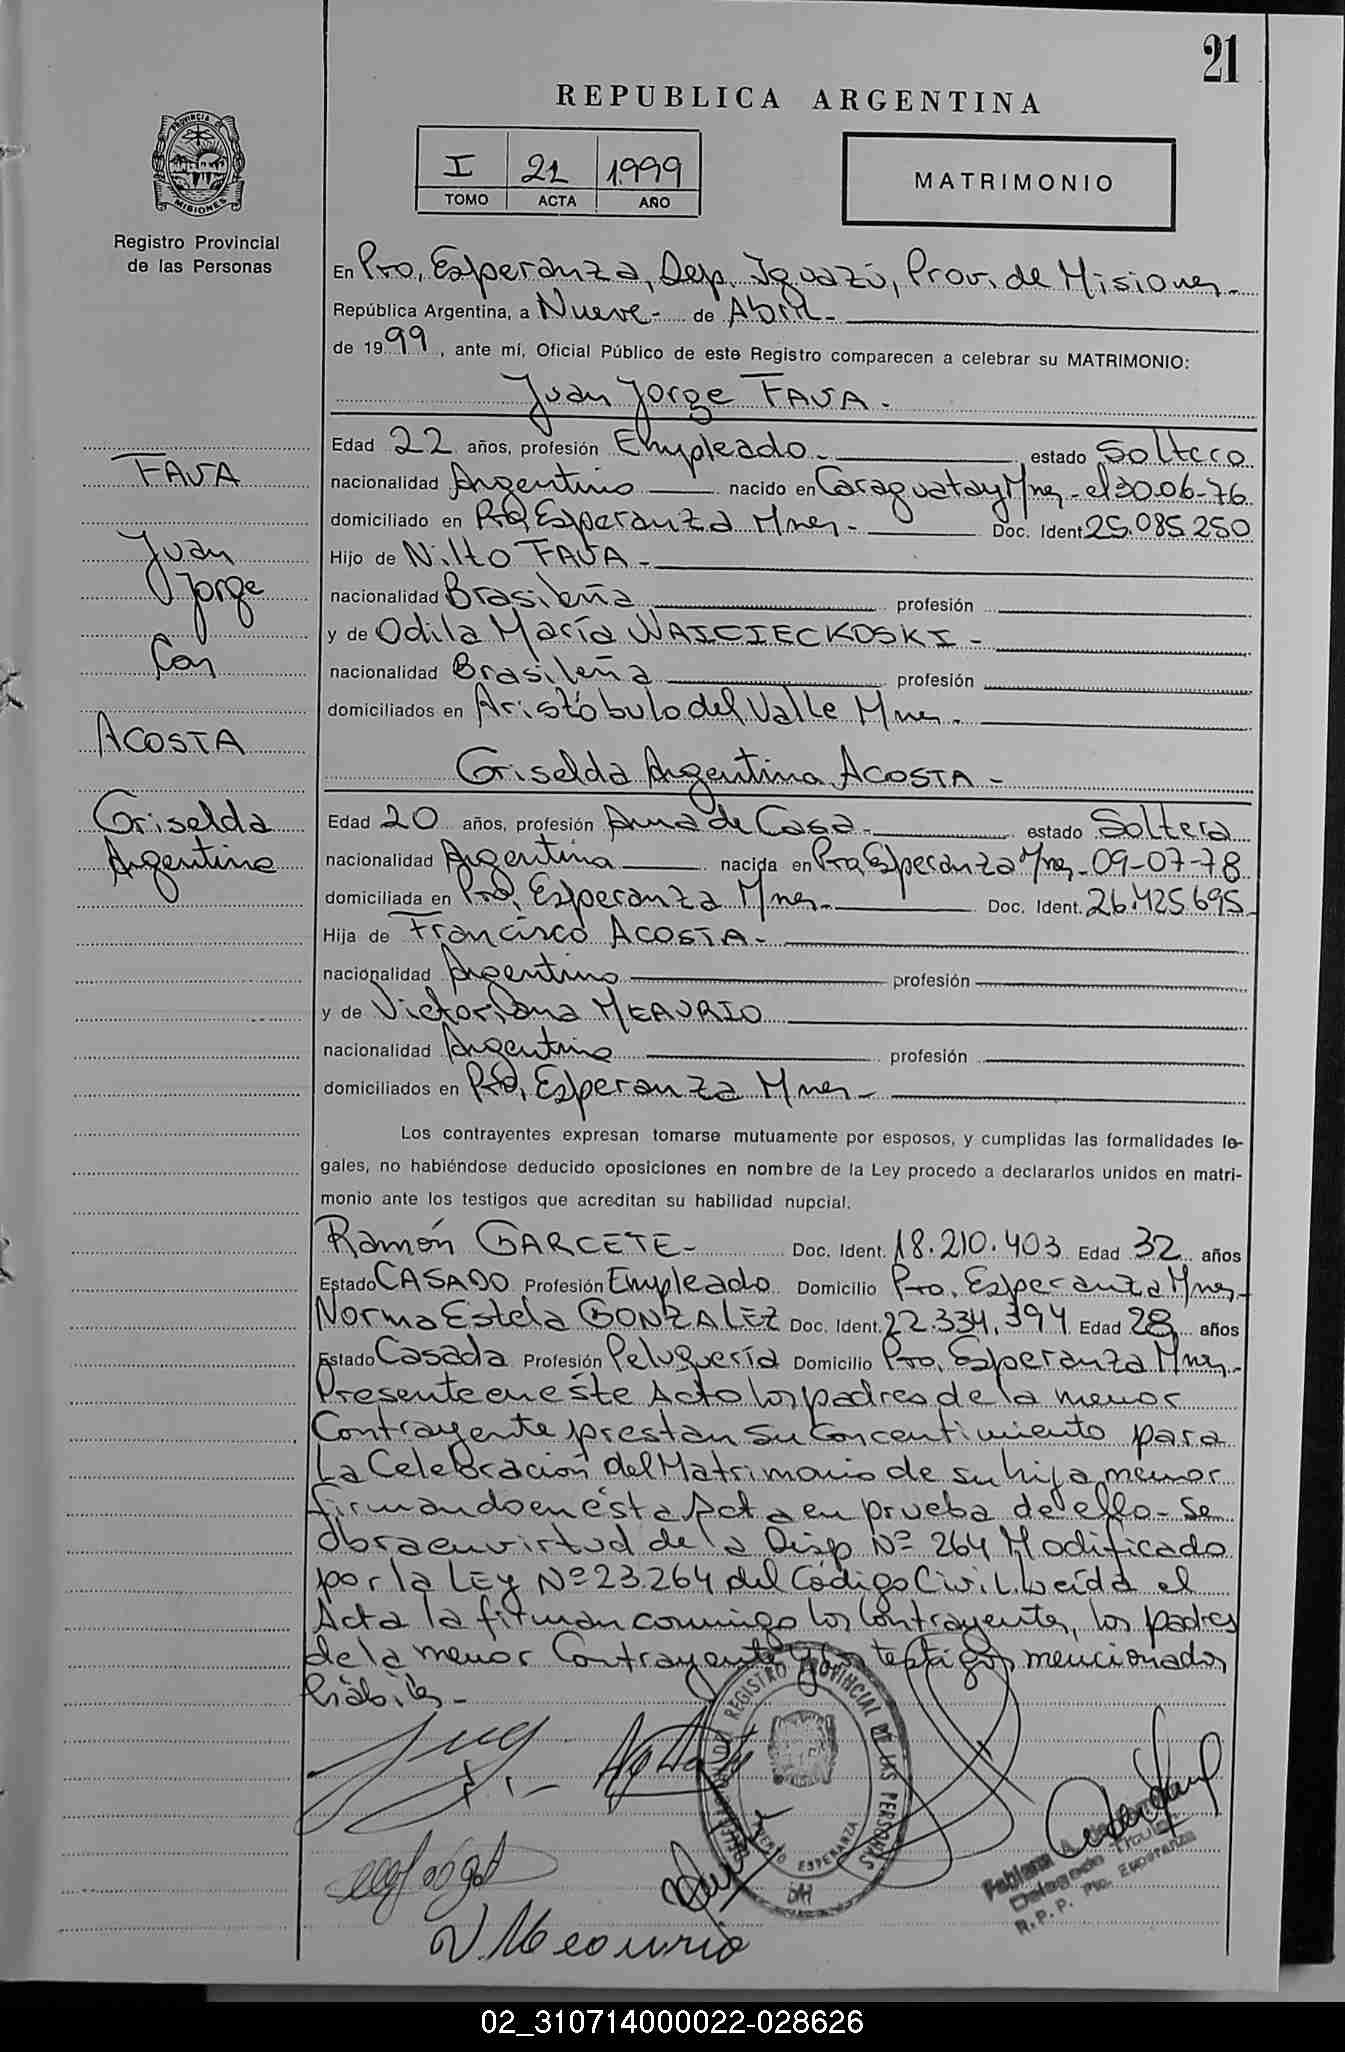 21
REPUBLICA ARGENTINA
I 21 1999
TOMO ACTA AÑO
MATRIMONIO
PROVINCIA DE
MISIONES
Registro Provincial
de las Personas
En Pto. Esperanza, Dep. Iguazú, Prov. de Misiones
República Argentina, a Nueve de Abril
de 1999, ante mí, Oficial Público de este Registro comparecen a celebrar su MATRIMONIO:
Juan Jorge FAVA.
Edad 22 años, profesión Empleado estado Soltero
nacionalidad Argentino nacido en Caraguatay Mnes. el 30-06-76
domiciliado en Pto. Esperanza Mnes. Doc. Ident 25.085.250
Hijo de Nilto FAVA
nacionalidad Brasileña profesión
y de Odila María WAICIECKOSKI
nacionalidad Brasileña profesión
domiciliados en Aristóbulo del Valle Mnes.
Griselda Argentina ACOSTA
Edad 20 años, profesión Ama de Casa estado Soltera
nacionalidad Argentina nacida en Pto. Esperanza Mnes. 09-07-78
domiciliada en Pto. Esperanza Mnes. Doc. Ident. 26.425.695
Hija de Francisco ACOSTA
nacionalidad Argentino profesión
y de Victoriana MEAURIO
nacionalidad Argentina profesión
domiciliados en Pto. Esperanza Mnes
Los contrayentes expresan tomarse mutuamente por esposos, y cumplidas las formalidades le-
gales, no habiéndose deducido oposiciones en nombre de la Ley procedo a declararlos unidos en matri-
monio ante los testigos que acreditan su habilidad nupcial.
Ramón GARCETE Doc. Ident. 18.210.403 Edad 32 años
Estado CASADO Profesión Empleado Domicilio Pto. Esperanza Mnes
Norma Estela GONZALEZ Doc. Ident. 22.334.394 Edad 28 años
Estado Casada Profesión Peluquería Domicilio Pto. Esperanza Mnes
Presente en éste Acto los padres de la menor
Contrayente prestan su concentimiento para
La Celebración del Matrimonio de su hija menor
firmando en ésta Acta en prueba de ello- Se
obra en virtud de la Disp Nº 264 Modificado
por la LEY Nº 23.264 del Código Civil. Leída el
Acta la firman conmigo los contrayentes, los padres
de la menor Contrayente y los testigos mencionados
hábiles
FAVA
Juan
Jorge
Con
ACOSTA
Griselda
Argentina
REGISTRO PROVINCIAL DE LAS PERSONAS
PUERTO ESPERANZA
V. Meaurio
Fabiana A.
Delegado Titular
R. P. P. Pto. Esperanza
02_310714000022-028626